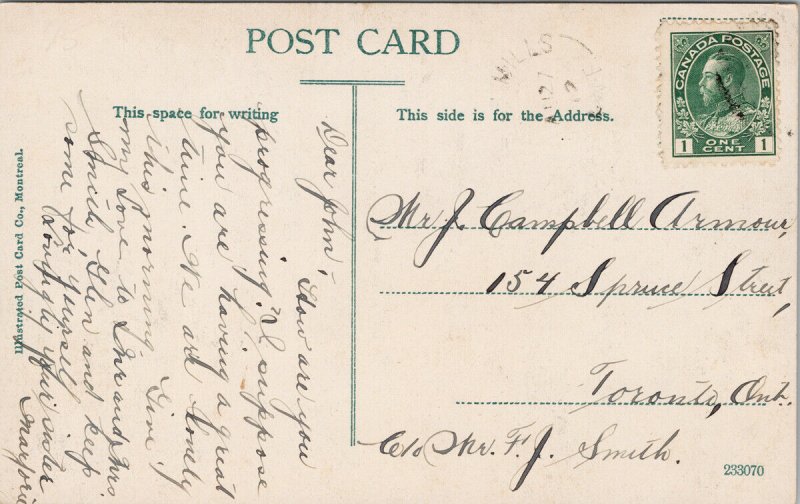 POST CARD
This space for writing
This side is for the Address.
MILLS
CANADA POSTAGE
1 ONE CENT 1
Illustrated Post Card Co., Montreal.
Dear John,
How are you
progressing? I suppose
you are having a great
time. We are lonely
this morning. Give
my love to Mr and Mrs.
Smith, Glen and keep
some for yourself
Lovingly your sister
Marjorie
Mr J. Campbell Armour,
154 Spruce Street,
Toronto, Ont.
C/o Mr. F. J. Smith.
233070